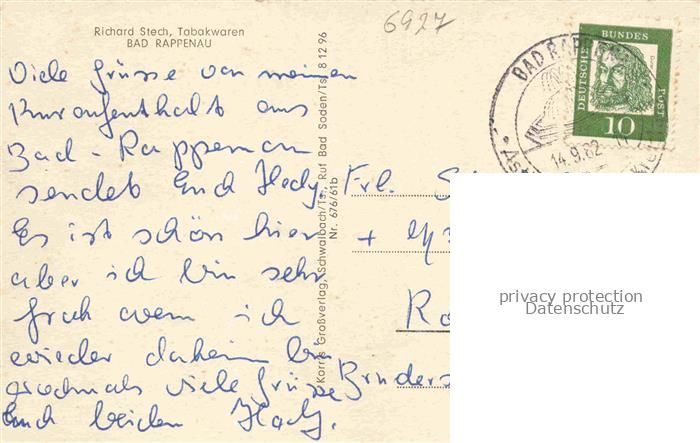 Richard Stech, Tabakwaren
BAD RAPPENAU
6927
Viele Grüsse von meinem
Kuraufenthalt aus
Bad-Rappenau
sendet Euch Hedy.
Es ist schön hier
aber ich bin sehr
froh wenn ich
wieder daheim bin
nochmals viele Grüsse
Euch beiden Hedy.
Korrs Großverlag, Schwalbach/Ts., Ruf Bad Soden/Ts. 8 12 96
Nr. 676/61b
DEUTSCHE BUNDESPOST
10
BAD RAPPENAU
14.9.62
Frl.
+
Ro
privacy protection
Datenschutz